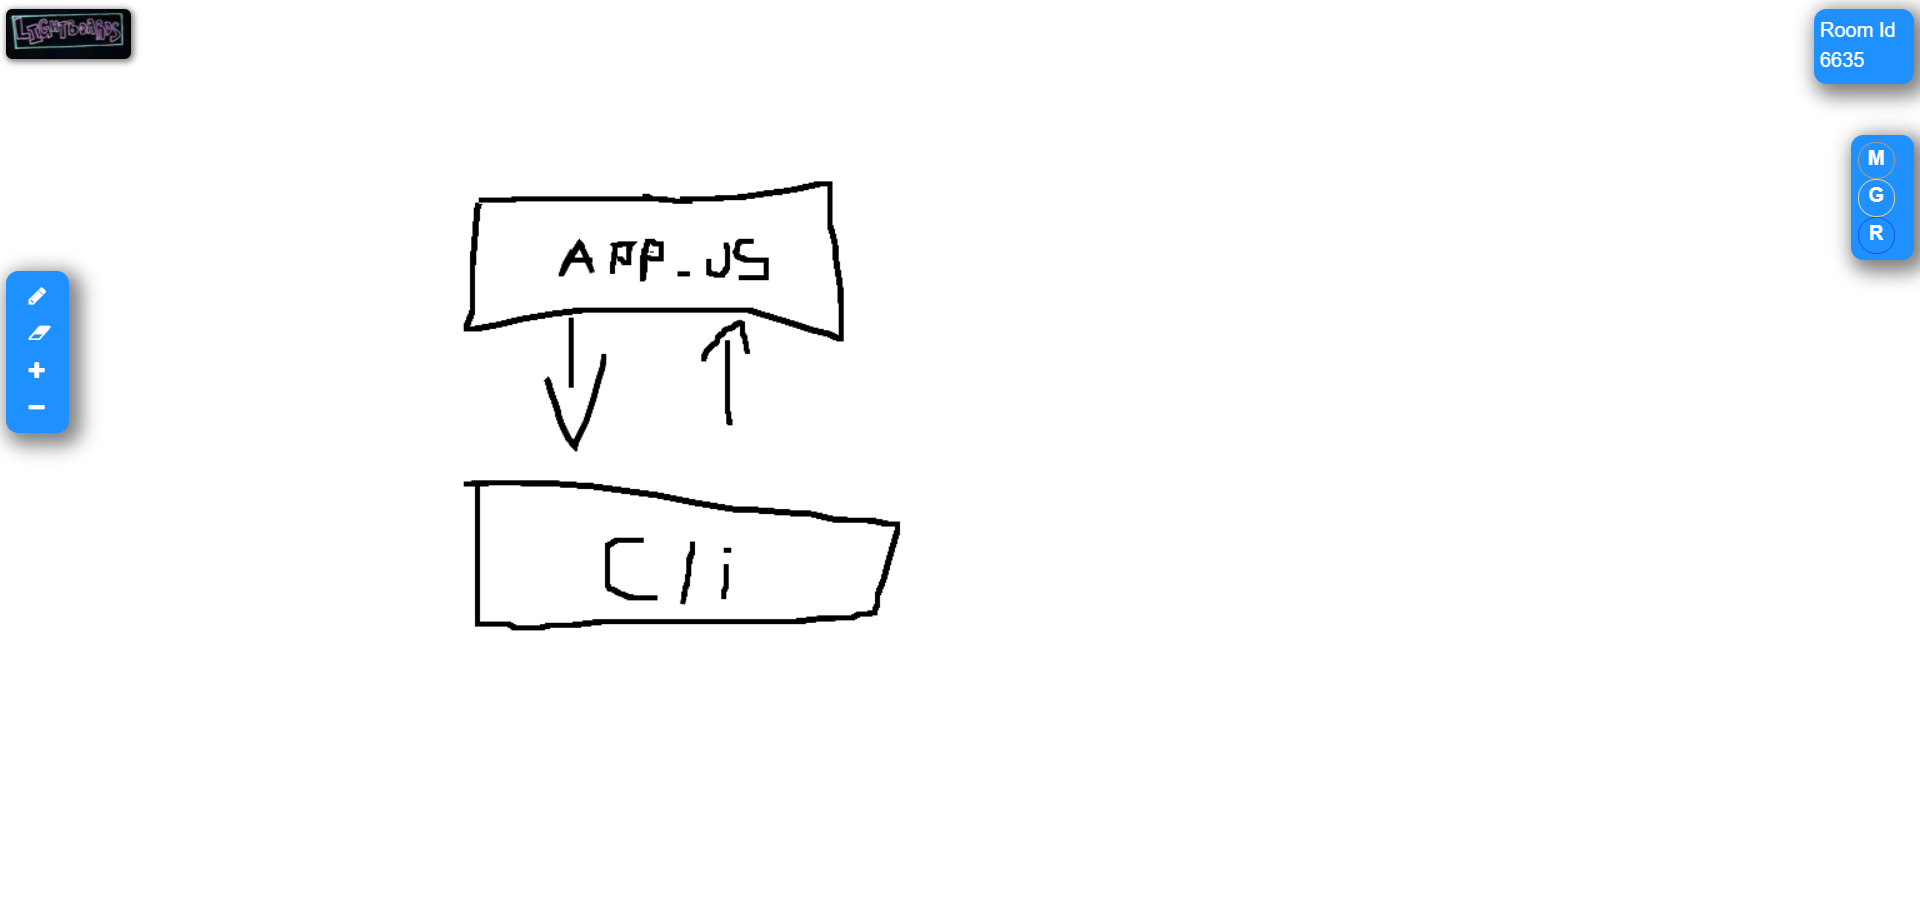 LIGHTBOARDS
Room Id
6635
M
G
R
APP_JS
C/i